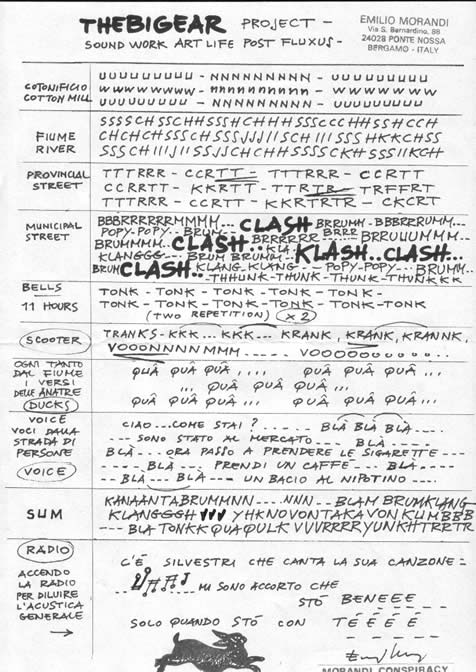 THEBIGEAR PROJECT -
SOUND WORK ART LIFE POST FLUXUS -
EMILIO MORANDI
Via S. Bernardino, 88
24028 PONTE NOSSA
BERGAMO - ITALY
COTONIFICIO
COTTON MILL
UUUUUUUUU - NNNNNNNNN - UUUUUUUUU
WWWWWWWW - nnnnnnnnnn - WWWWWWW
UUUUUUUU - NNNNNNNNN - UUUUUUUU
FIUME
RIVER
SSSSCHSSCHHSSSHCHHHSSSCCCHHSSHCCHH
CHCHCHSSSCHSSSJJJIISCHIIISSSHKKCHSS
SSSCHIIJIISSJSCHCHHSSSSCKHSSSIIKCH
PROVINCIAL
STREET
TTTRRR - CCRTT - TTTRRR - CCRTT
CCRRTT - KKRTT - TTRTR - TRFFRT
TTTRRR - CCRTT - KKRTRTR - CKCRT
MUNICIPAL
STREET
BBBRRRRRRMMMM... CLASH BRRUMM - BBBRRRUMM...
POPY-POPY.. BRUM
BRUMMMM... CLASH.. KLA KLASH..CLASH...
KLANGGG--- BRUM BRUMM..
BRUM CLASH.. KLANG-KLANG - POPY-POPY --- BRUMM..
THHUNK-THUNK-THUNK-THUNKKK
BELLS
11 HOURS
TONK - TONK - TONK - TONK - TONK -
TONK - TONK - TONK - TONK - TONK - TONK
(TWO REPETITION) X 2
SCOOTER
TRANKS - KKK ... KKK ... KRANK, KRANK, KRANNK,
VOOONNNNMMM ..... VOOOOOOOOO...
OGNI TANTO
DAL FIUME
I VERSI
DELLE ANATRE
DUCKS
QUÂ QUÂ QUÂ ,,,, QUÂ QUÂ QUÂ ,,,
,,, QUÂ QUÂ QUÂ ,,,
QUÂ QUÂ QUÂ QUÂ QUÂ QUÂ
VOICE
VOCI DALLA
STRADA DI
PERSONE
VOICE
CIAO...COME STAI? ----- BLÂ BLÂ BLÂ---
--- SONO STATO AL MERCATO --- BLÀ ----
BLÀ... ORA PASSO A PRENDERE LE SIGARETTE ---
---- BLÀ... PRENDI UN CAFFE - BLÀ.----
-- BLÀ --- BLÀ --- UN BACIO AL NIPOTINO ----
SUM
KANAANTABRUMMNN ---- NNN -- BLAM BRUMKLANG-
KLANGGGH VVV YHKNOVONTAKAVONKLUMBBB
--- BLA TONKKQUAQULKVUVRRRRYUNKHTRRTR
RADIO
ACCENDO
LA RADIO
PER DILUIRE
L'ACUSTICA
GENERALE
C'É SILVESTRI CHE CANTA LA SUA CANZONE:
MI SONO ACCORTO CHE
STÒ BENEEE
SOLO QUANDO STÓ CON TÉÉÉÉ